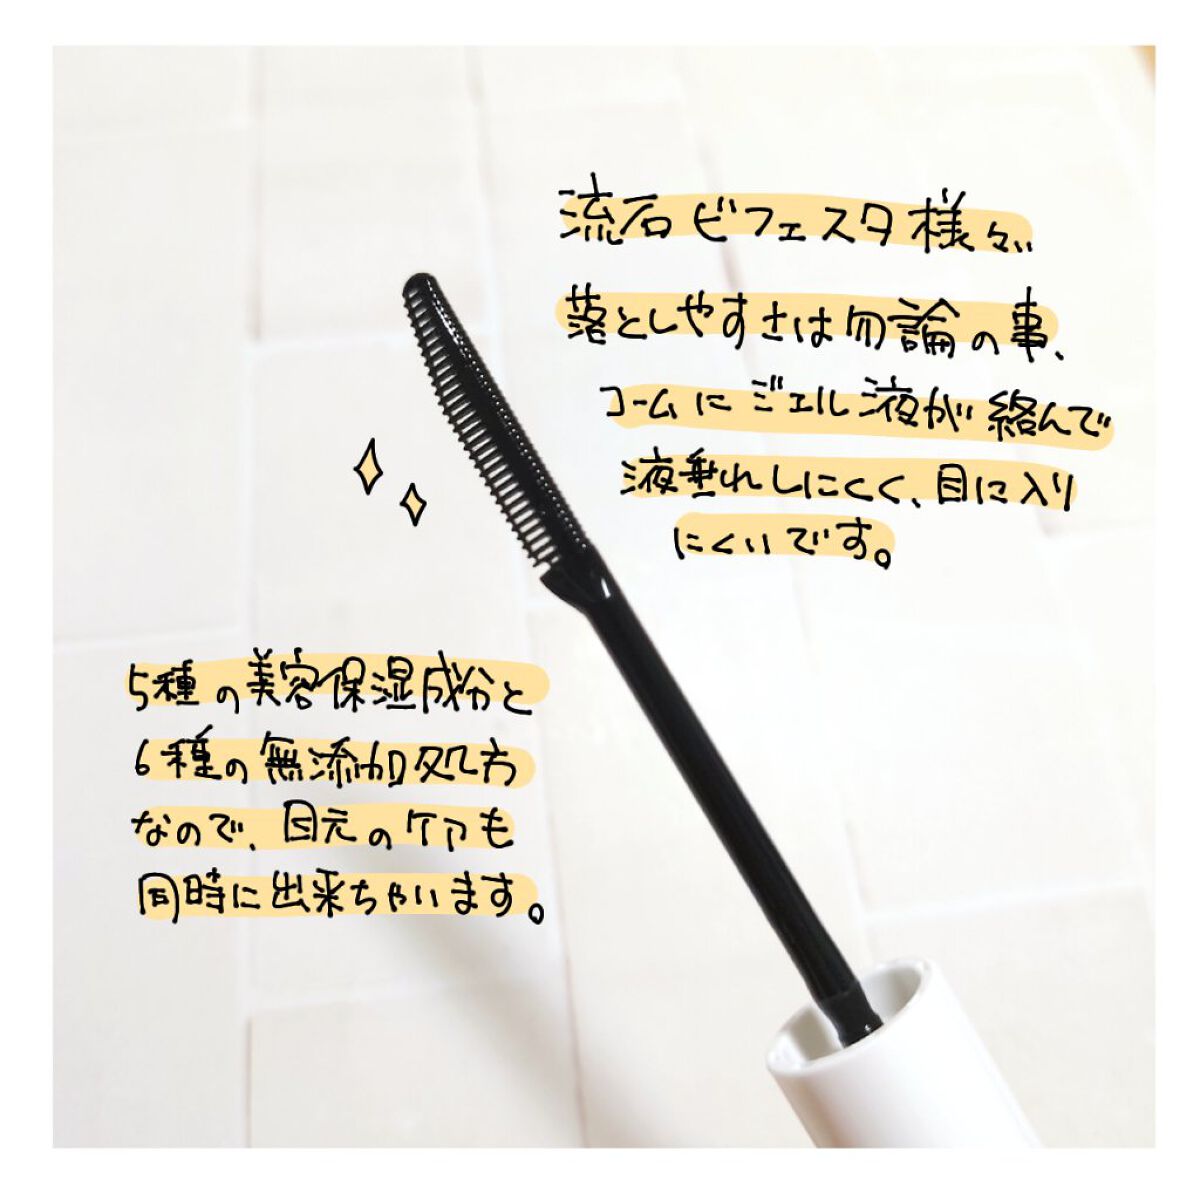 流石ビフェスタ様々、
落としやすさは勿論の事、
コームにジェル液が絡んで
液垂れしにくく、目に入り
にくいです。
5種の美容保湿成分と
6種の無添加処方
なので、目元のケアも
同時に出来ちゃいます。